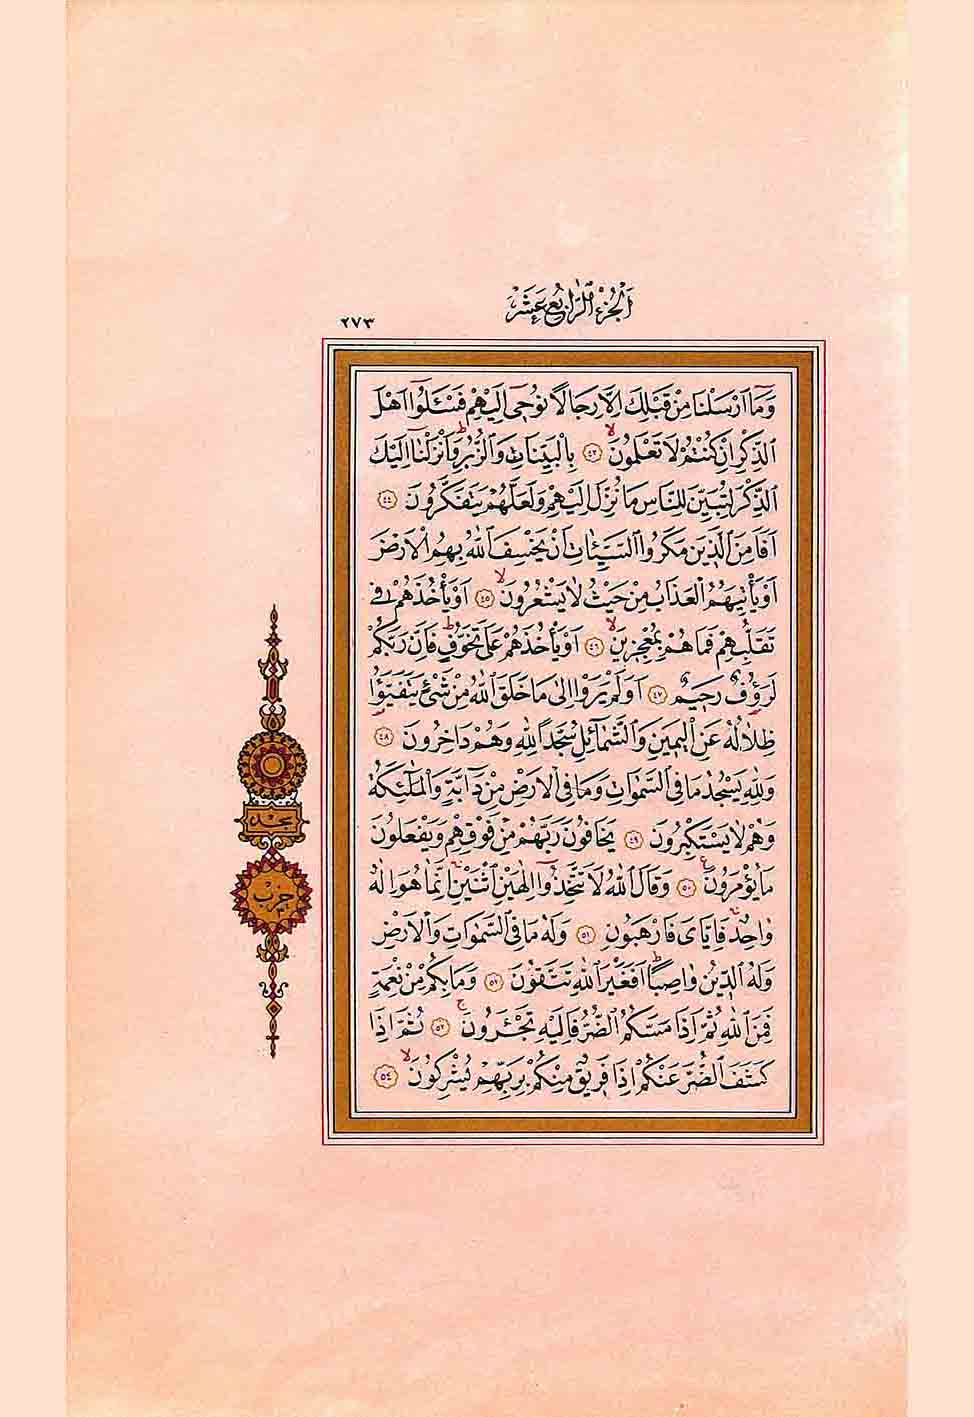 اَلْجُزْءُ الرَّابِعُ عَشَرَ
٢٧٣
وَمَٓا اَرْسَلْنَا مِنْ قَبْلِكَ اِلَّا رِجَالًا نُوح۪ٓي اِلَيْهِمْ فَسْـَٔلُٓوا اَهْلَ
الذِّكْرِ اِنْ كُنْتُمْ لَا تَعْلَمُونَۙ ﴿٤٣﴾ بِالْبَيِّنَاتِ وَالزُّبُرِۜ وَاَنْزَلْنَٓا اِلَيْكَ
الذِّكْرَ لِتُبَيِّنَ لِلنَّاسِ مَا نُزِّلَ اِلَيْهِمْ وَلَعَلَّهُمْ يَتَفَكَّرُونَ ﴿٤٤﴾
اَفَاَمِنَ الَّذ۪ينَ مَكَرُوا السَّيِّـَٔاتِ اَنْ يَخْسِفَ اللّٰهُ بِهِمُ الْاَرْضَ
اَوْ يَأْتِيَهُمُ الْعَذَابُ مِنْ حَيْثُ لَا يَشْعُرُونَۙ ﴿٤٥﴾ اَوْ يَأْخُذَهُمْ ف۪ي
تَقَلُّبِهِمْ فَمَا هُمْ بِمُعْجِز۪ينَۙ ﴿٤٦﴾ اَوْ يَأْخُذَهُمْ عَلٰى تَخَوُّفٍۜ فَاِنَّ رَبَّكُمْ
لَرَؤُ۫فٌ رَح۪يمٌ ﴿٤٧﴾ اَوَلَمْ يَرَوْا اِلٰى مَا خَلَقَ اللّٰهُ مِنْ شَيْءٍ يَتَفَيَّؤُ۬ا
ظِلَالُهُ عَنِ الْيَم۪ينِ وَالشَّمَٓائِلِ سُجَّدًا لِلّٰهِ وَهُمْ دَاخِرُونَ ﴿٤٨﴾
وَلِلّٰهِ يَسْجُدُ مَا فِي السَّمٰوَاتِ وَمَا فِي الْاَرْضِ مِنْ دَٓابَّةٍ وَالْمَلٰٓئِكَةُ
وَهُمْ لَا يَسْتَكْبِرُونَ ﴿٤٩﴾ يَخَافُونَ رَبَّهُمْ مِنْ فَوْقِهِمْ وَيَفْعَلُونَ
مَا يُؤْمَرُونَ ع ﴿٥٠﴾ وَقَالَ اللّٰهُ لَا تَتَّخِذُٓوا اِلٰهَيْنِ اثْنَيْنِۚ اِنَّمَا هُوَ اِلٰهٌ
وَاحِدٌۚ فَاِيَّايَ فَارْهَبُونِ ﴿٥١﴾ وَلَهُ مَا فِي السَّمٰوَاتِ وَالْاَرْضِ
وَلَهُ الدّ۪ينُ وَاصِبًاۜ اَفَغَيْرَ اللّٰهِ تَتَّقُونَ ﴿٥٢﴾ وَمَا بِكُمْ مِنْ نِعْمَةٍ
فَمِنَ اللّٰهِ ثُمَّ اِذَا مَسَّكُمُ الضُّرُّ فَاِلَيْهِ تَجْـَٔرُونَۚ ﴿٥٣﴾ ثُمَّ اِذَا
كَشَفَ الضُّرَّ عَنْكُمْ اِذَا فَر۪يقٌ مِنْكُمْ بِرَبِّهِمْ يُشْرِكُونَۙ ﴿٥٤﴾
سجده
حزب
٣